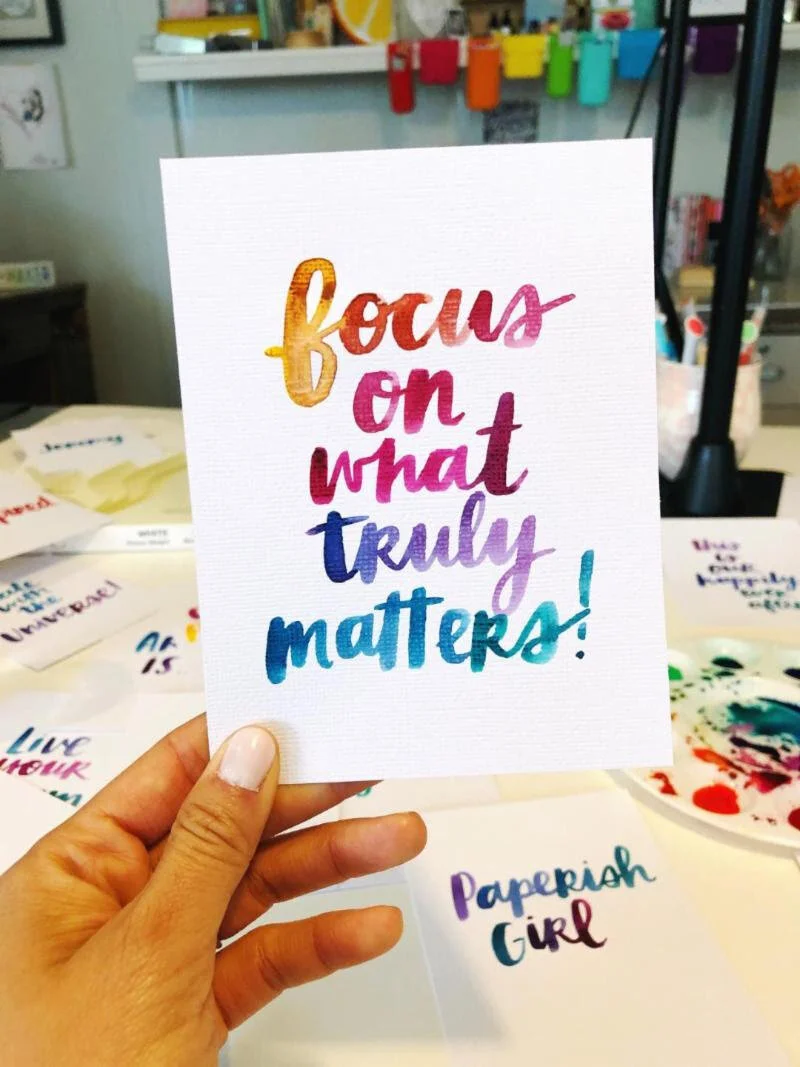 focus
on
what
truly
matters!
WHITE
this
is
our
happily
ever
after
UNIVERSE!
IS
LIVE
YOUR
Paperish
Girl